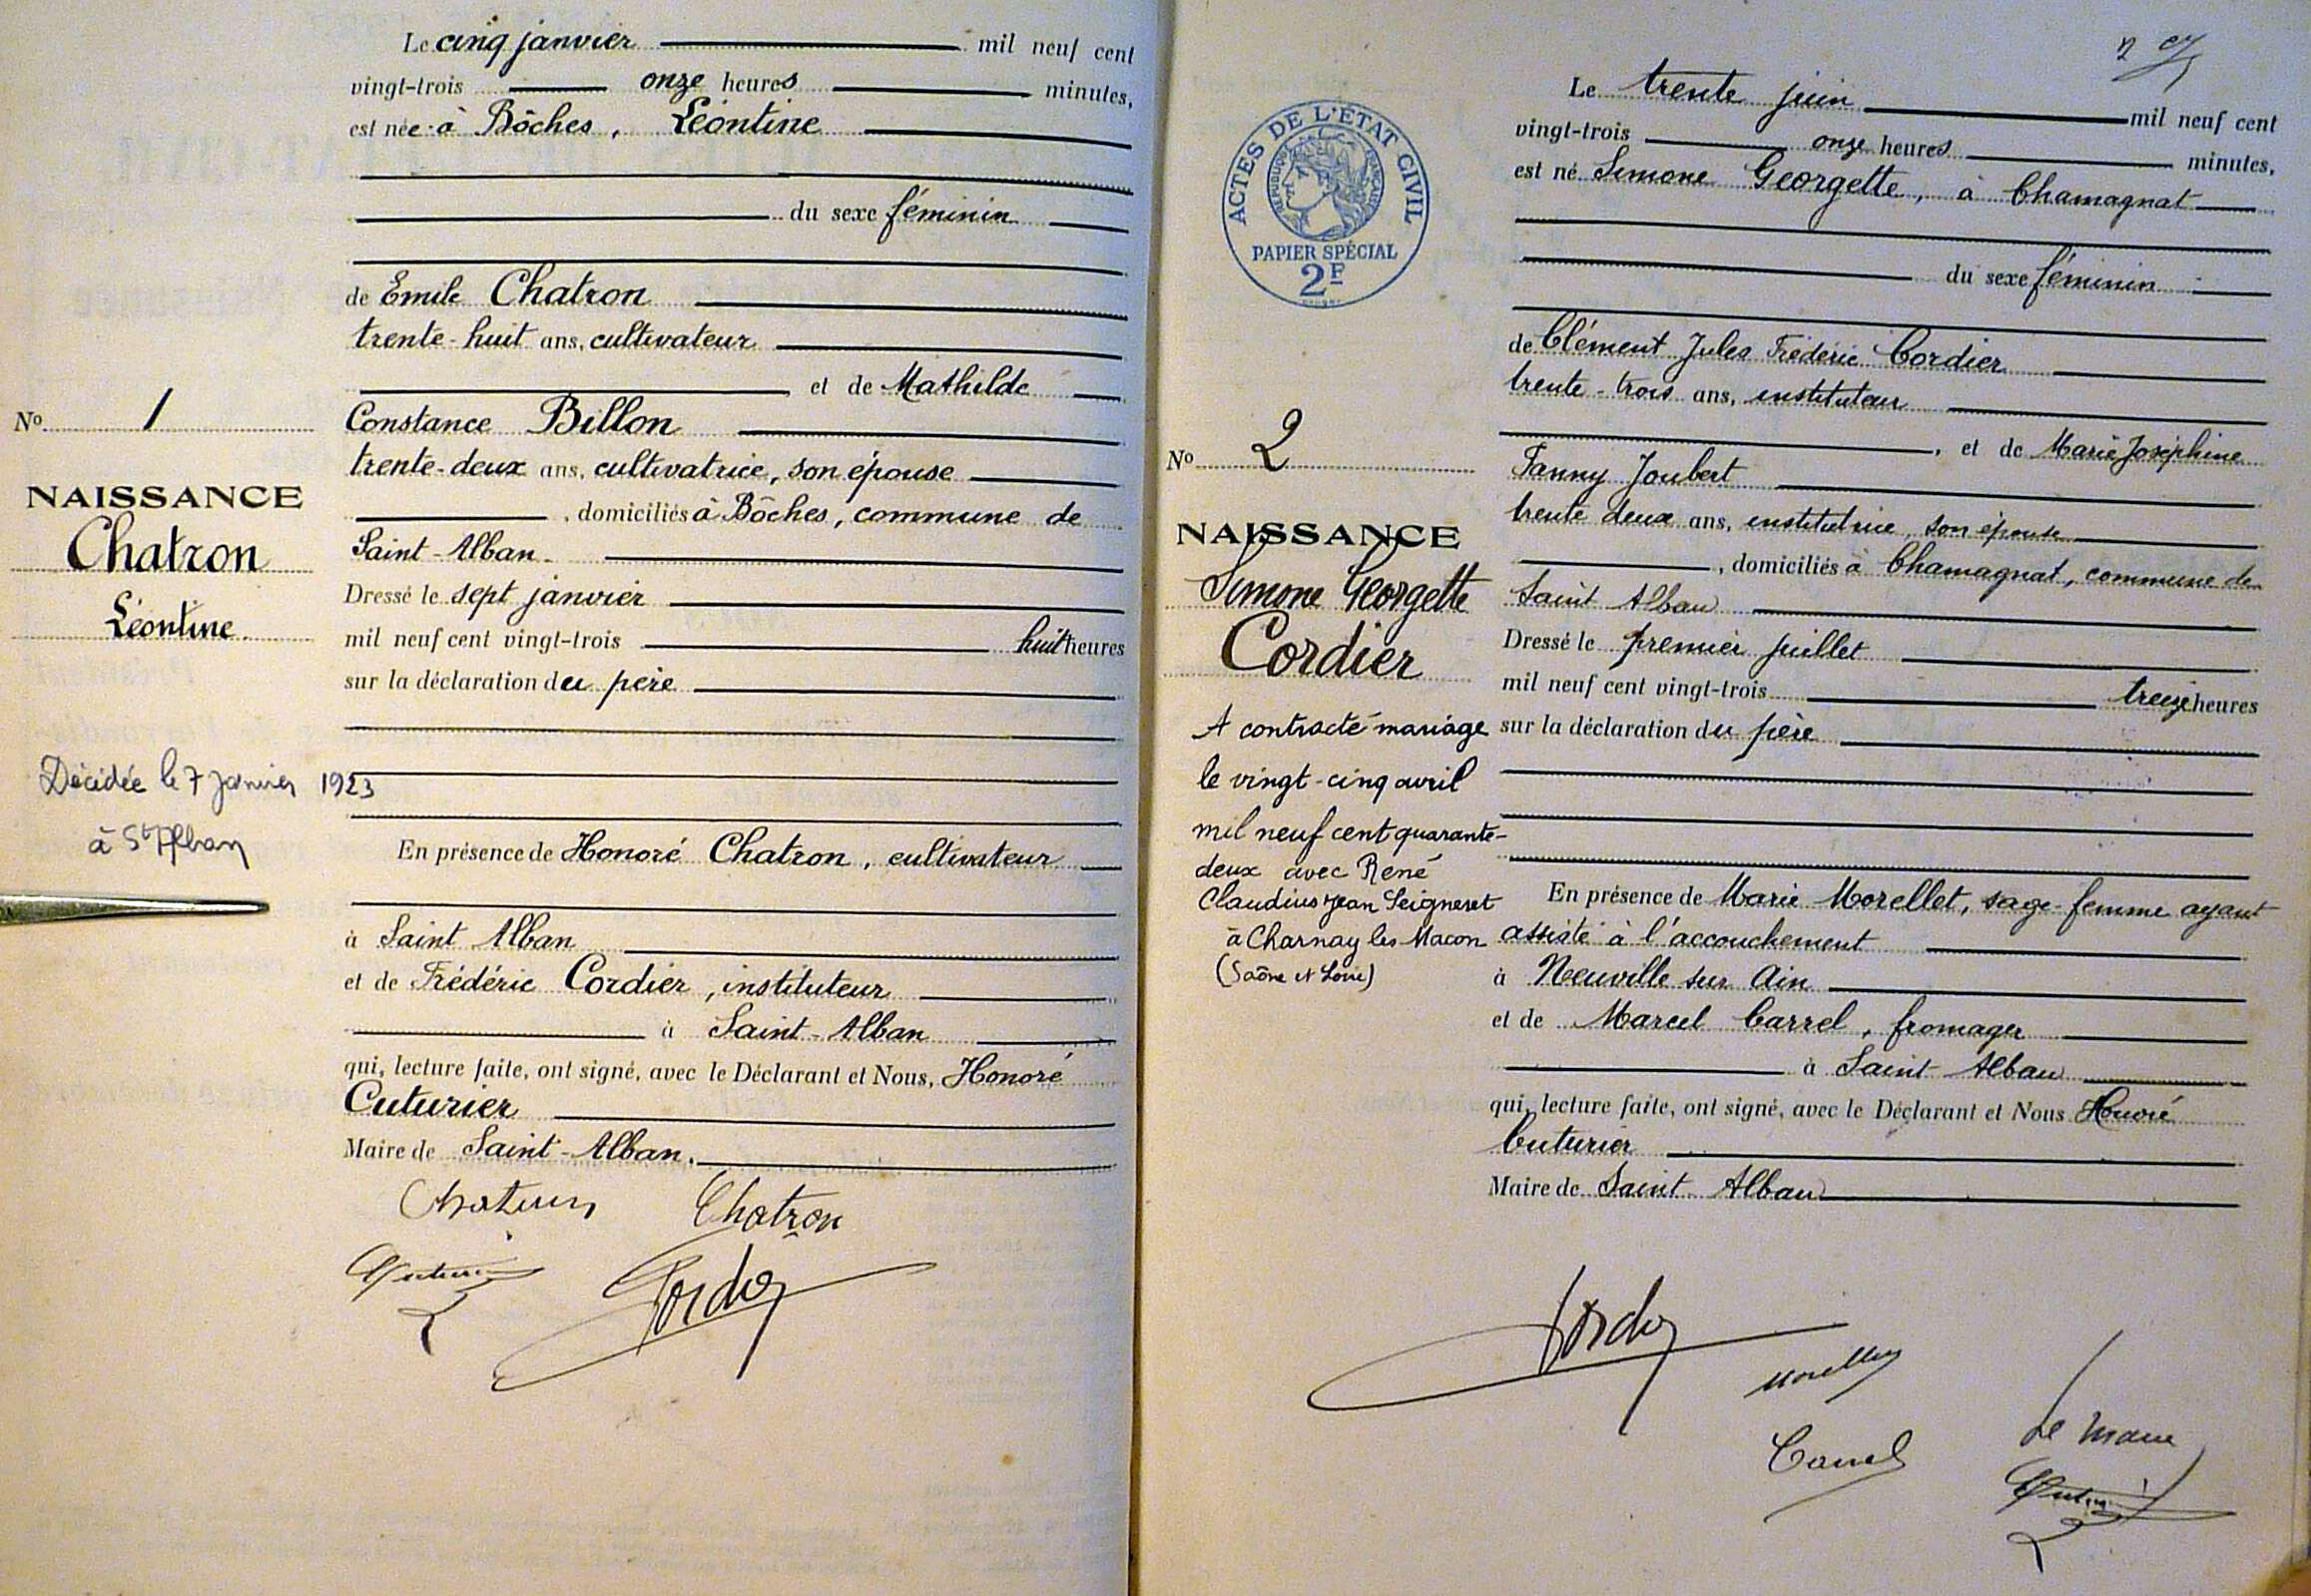 Le cinq janvier mil neuf cent
vingt-trois onze heures minutes,
est née à Bôches, Léontine
du sexe féminin
de Emile Chatron
trente-huit ans, cultivateur
et de Mathilde
Constance Billon
trente-deux ans, cultivatrice, son épouse
, domiciliés à Bôches, commune de
Saint-Alban.
Dressé le sept janvier
mil neuf cent vingt-trois huit heures
sur la déclaration du père
En présence de Honoré Chatron, cultivateur
à Saint Alban
et de Frédéric Cordier, instituteur
à Saint-Alban
qui, lecture faite, ont signé, avec le Déclarant et Nous, Honoré
Cuturier
Maire de Saint-Alban.
Chatron
No 1
NAISSANCE
Chatron
Léontine
Décidée le 7 janvier 1923
à St Alban
Le trente juin mil neuf cent
vingt-trois onze heures minutes,
est né Simone Georgette, à Chamagnat
du sexe féminin
de Clément Jules Frédéric Cordier
trente-trois ans, instituteur
, et de Marie Joséphine
Fanny Joubert
trente deux ans, institutrice, son épouse
, domiciliés à Chamagnat, commune de
Saint Alban
Dressé le premier juillet
mil neuf cent vingt-trois treize heures
sur la déclaration du père
En présence de Marie Morellet, sage-femme ayant
assisté à l'accouchement
à Neuville sur Ain
et de Marcel Carrel, fromager
à Saint Alban
qui, lecture faite, ont signé, avec le Déclarant et Nous Honoré
Cuturier
Maire de Saint Alban
Carrel
Le Maire
ACTES DE L'ÉTAT CIVIL
RÉPUBLIQUE FRANÇAISE
PAPIER SPÉCIAL
2F
No 2
NAISSANCE
Simone Georgette
Cordier
A contracté mariage
le vingt-cinq avril
mil neuf cent quarante-
deux avec René
Claudius Jean Seigneret
à Charnay les Macon
(Saône et Loire)